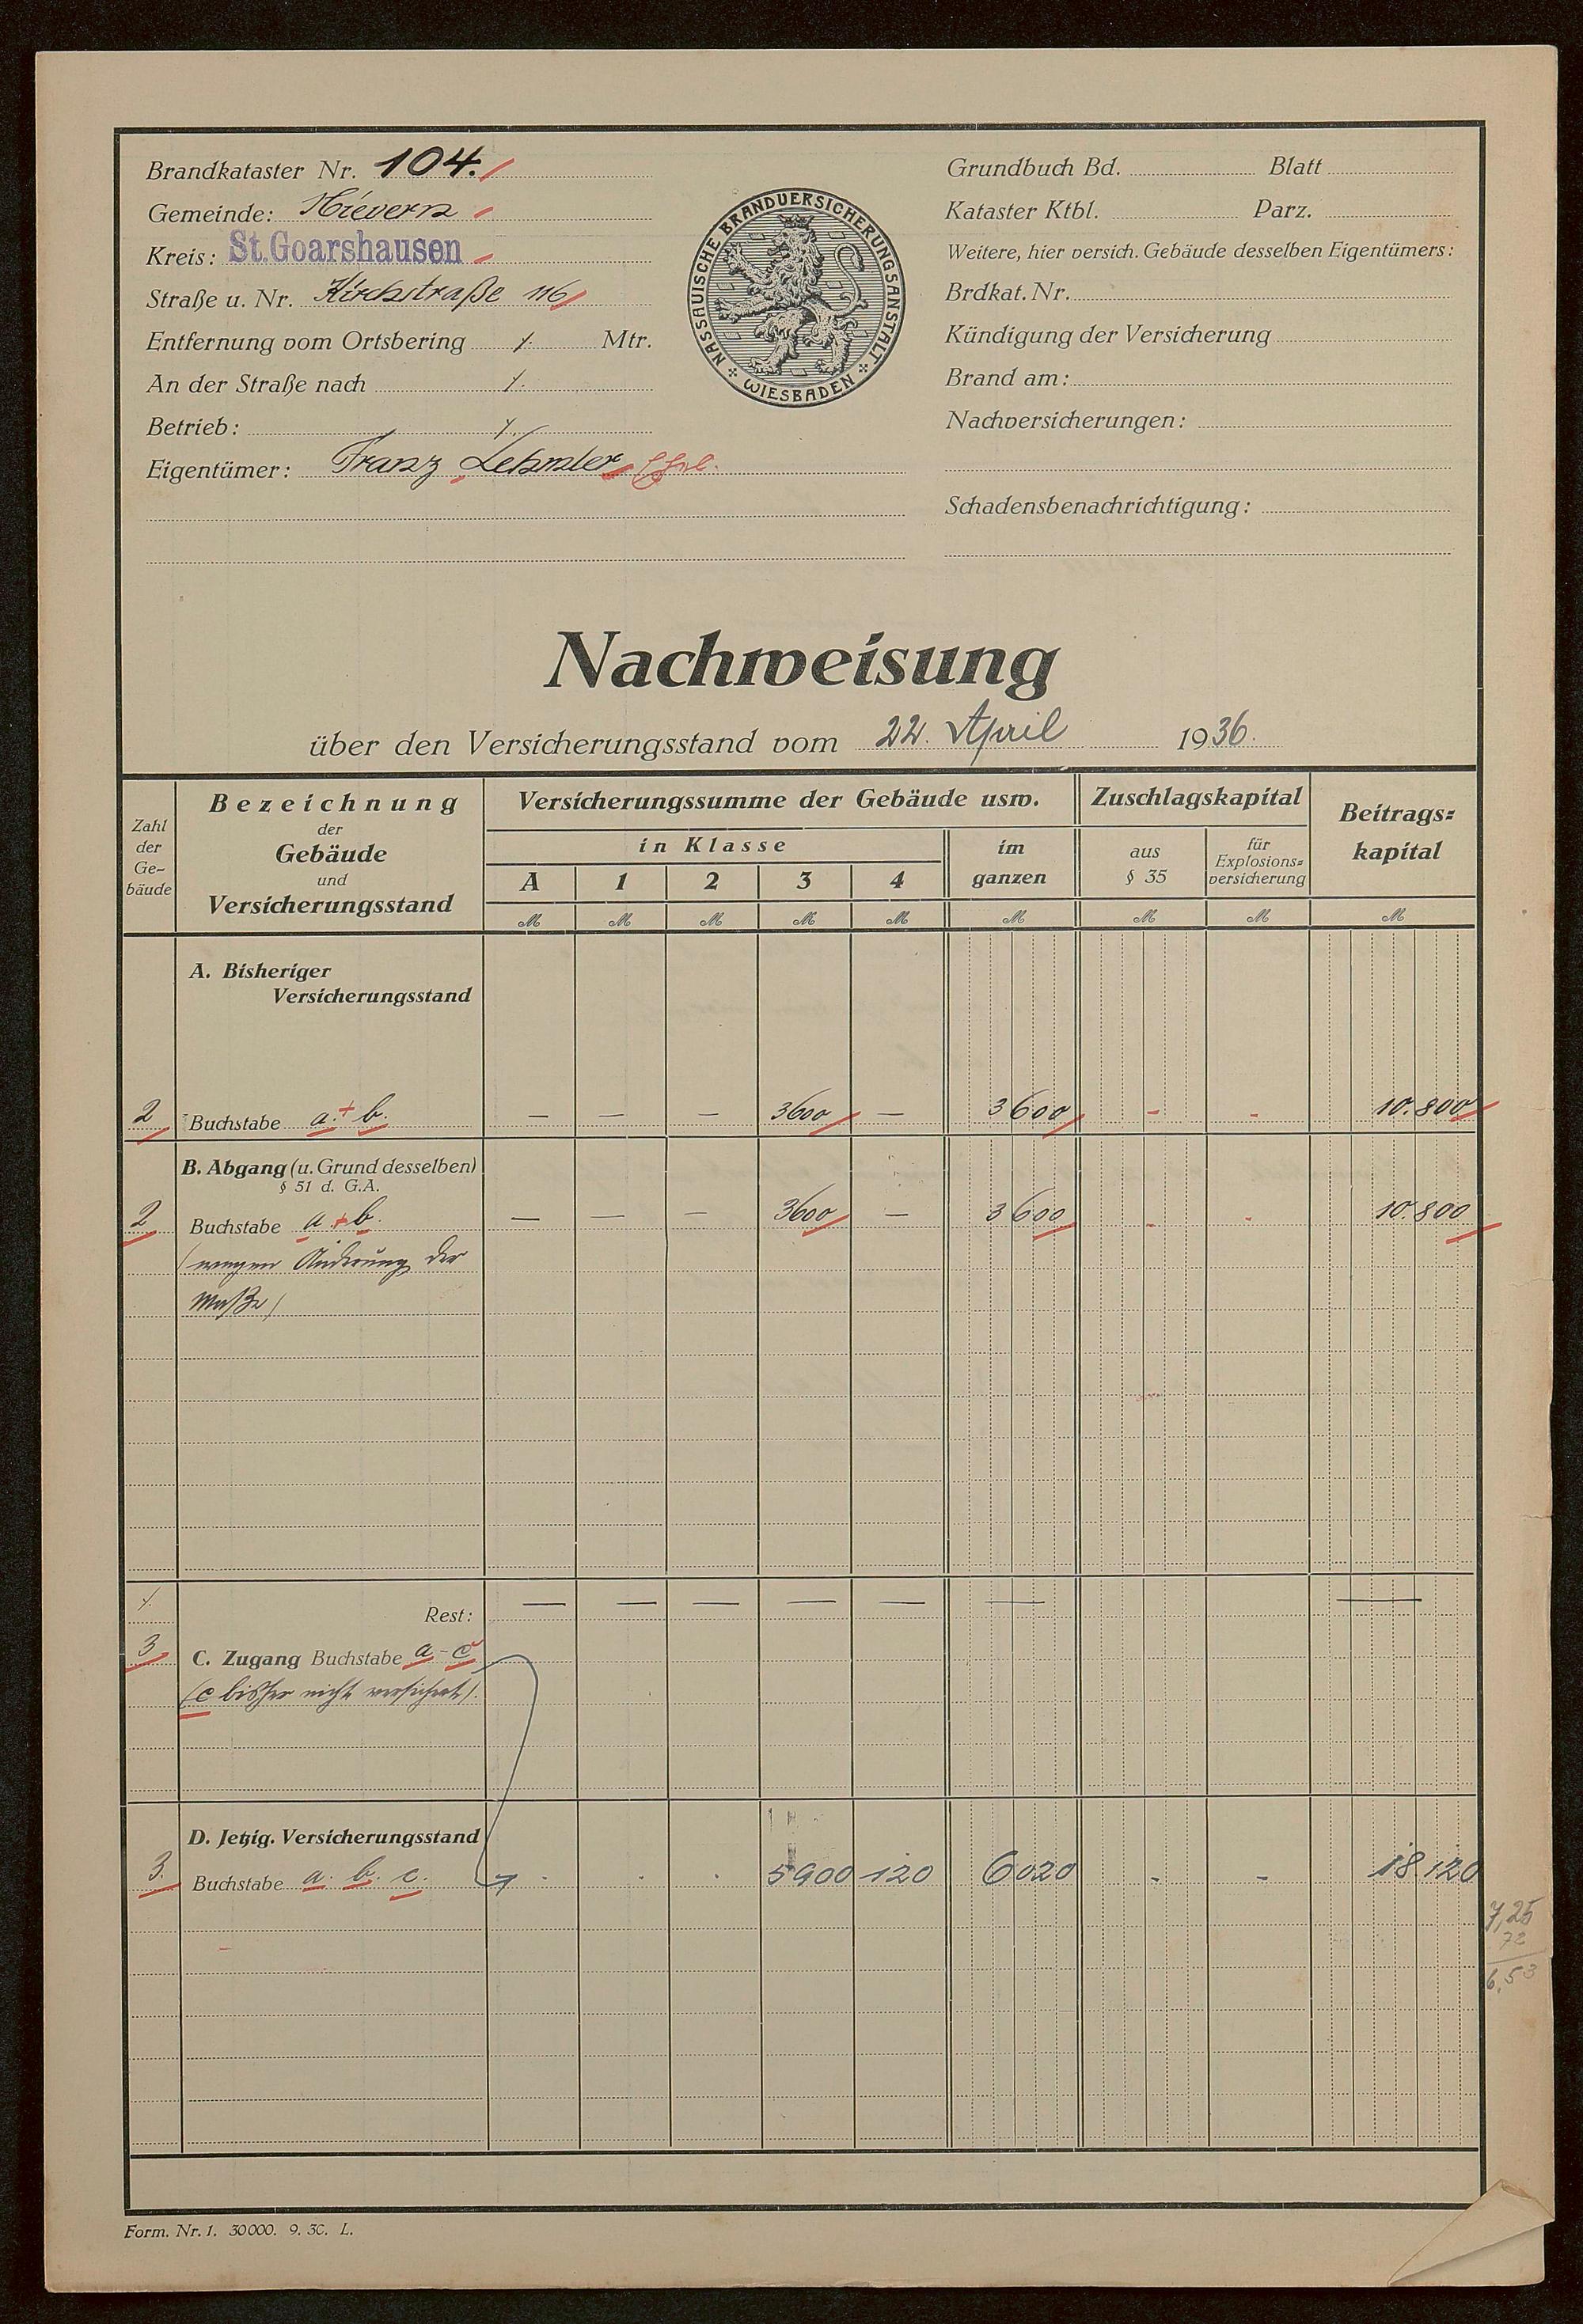 Brandkataster Nr. 104.
Gemeinde: Nievern
Kreis: St. Goarshausen
Straße u. Nr. Kirchstraße 116
Entfernung vom Ortsbering ⁒ Mtr.
An der Straße nach ⁒
Betrieb: ⁒
Eigentümer: Franz
NASSAUISCHE BRANDVERSICHERUNGSANSTALT
WIESBADEN
Grundbuch Bd. Blatt
Kataster Ktbl. Parz.
Weitere, hier versich. Gebäude desselben Eigentümers:
Brdkat. Nr.
Kündigung der Versicherung
Brand am:
Nachversicherungen:
Schadensbenachrichtigung:
Nachweisung
über den Versicherungsstand vom 22. April 1936.
Zahl der Ge- bäude
Bezeichnung der Gebäude und Versicherungsstand
Versicherungssumme der Gebäude usw.
in Klasse
A 1 2 3 4
im ganzen
Zuschlagskapital
aus § 35
für Explosions= versicherung
Beitrags= kapital
M M M M M M M M M
A. Bisheriger
Versicherungsstand
2 Buchstabe a. + b. — — — 3600 — 3600 - - 10.800
B. Abgang (u. Grund desselben)
§ 51 d. G.A.
2 Buchstabe a + b. — — — 3600 — 3600 - - 10.800
(wegen Änderung der
Maße)
⁒ Rest: — — — — — — —
3 C. Zugang Buchstabe a - c
(c bisher nicht versichert).
D. Jetzig. Versicherungsstand
3. Buchstabe a. b. c. . . . 5900 120 6020 - - 18 120
7,25
72
6,53
Form. Nr. 1. 30000. 9. 30. L.